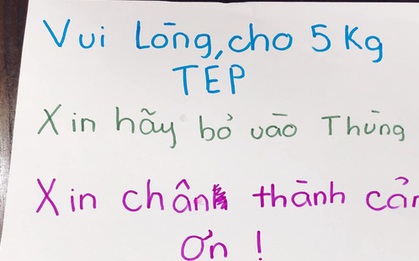 Vui Lòng, cho 5 Kg
TÉP
Xin hãy bỏ vào Thùng
Xin chân thành cản
Ơn !